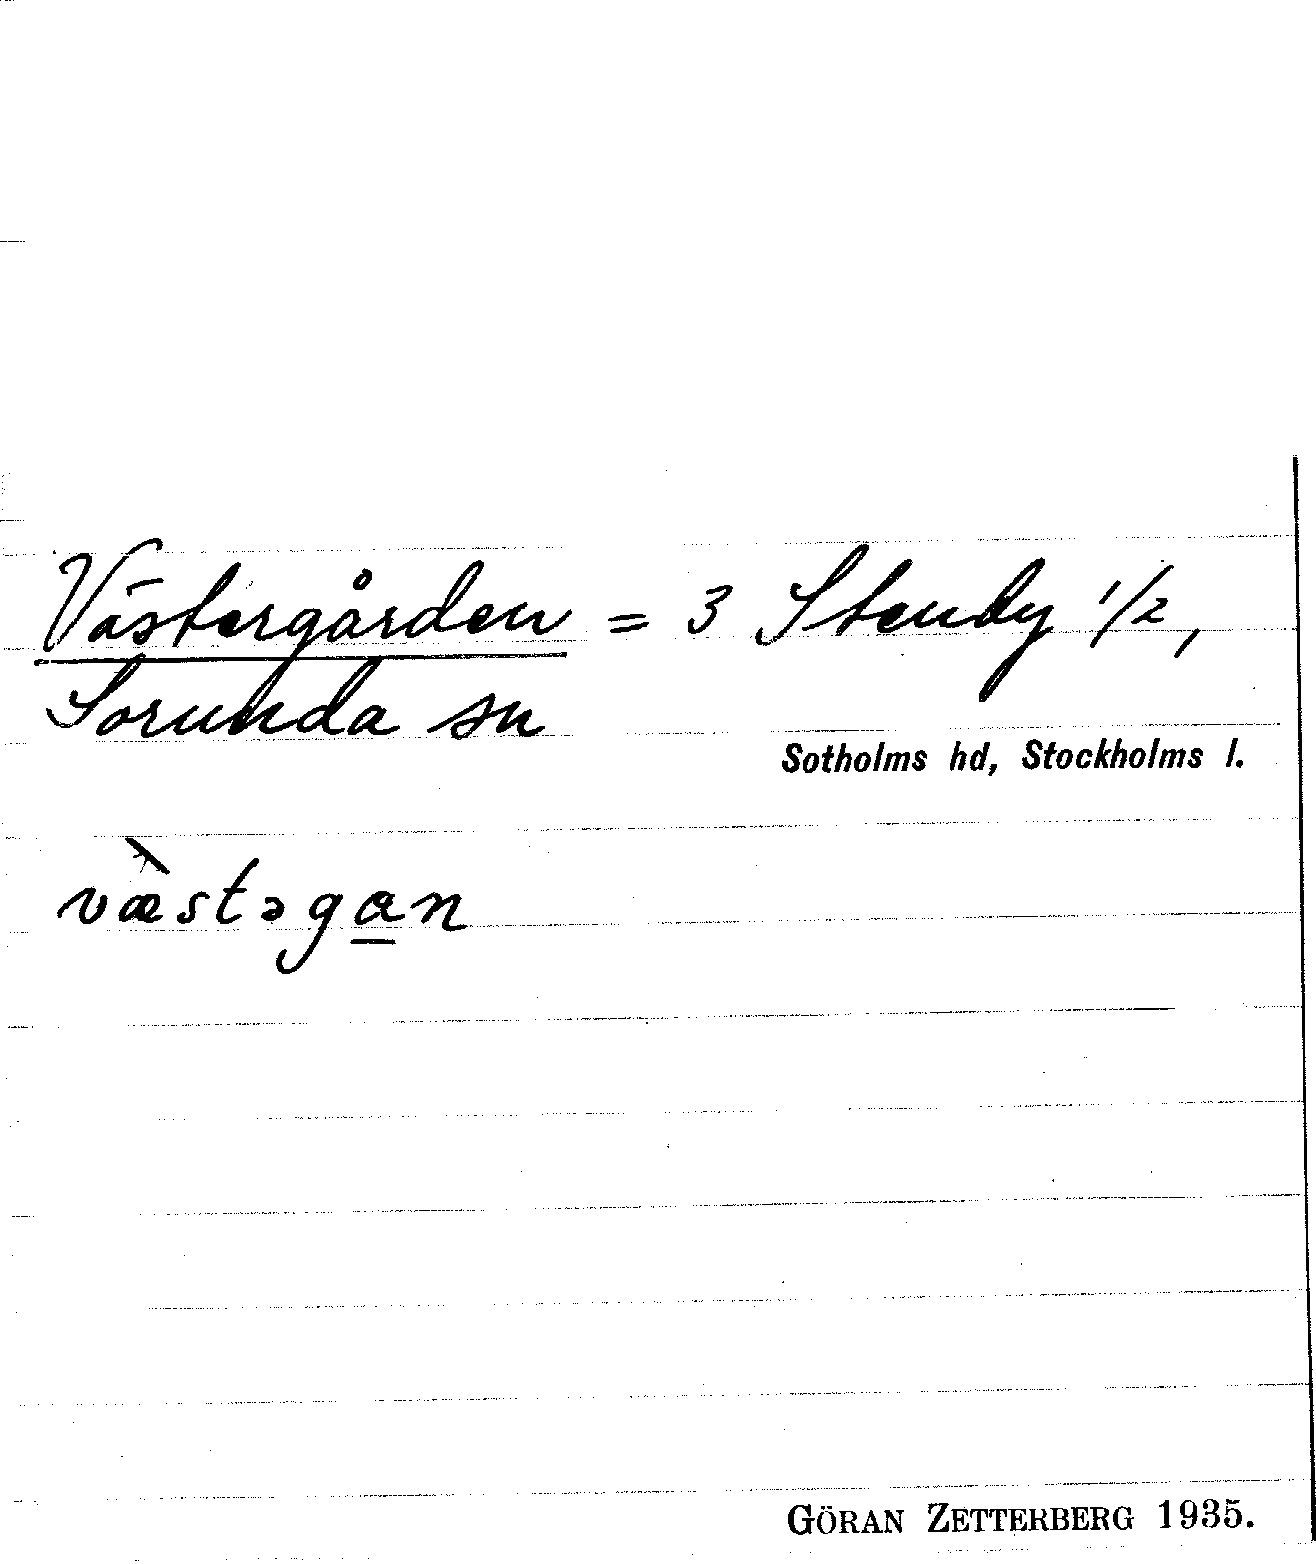 Västergården = 3 Stenby 1/2,
Sorunda sn
Sotholms hd, Stockholms l.
væ̀stəga̱n
GÖRAN ZETTERBERG 1935.